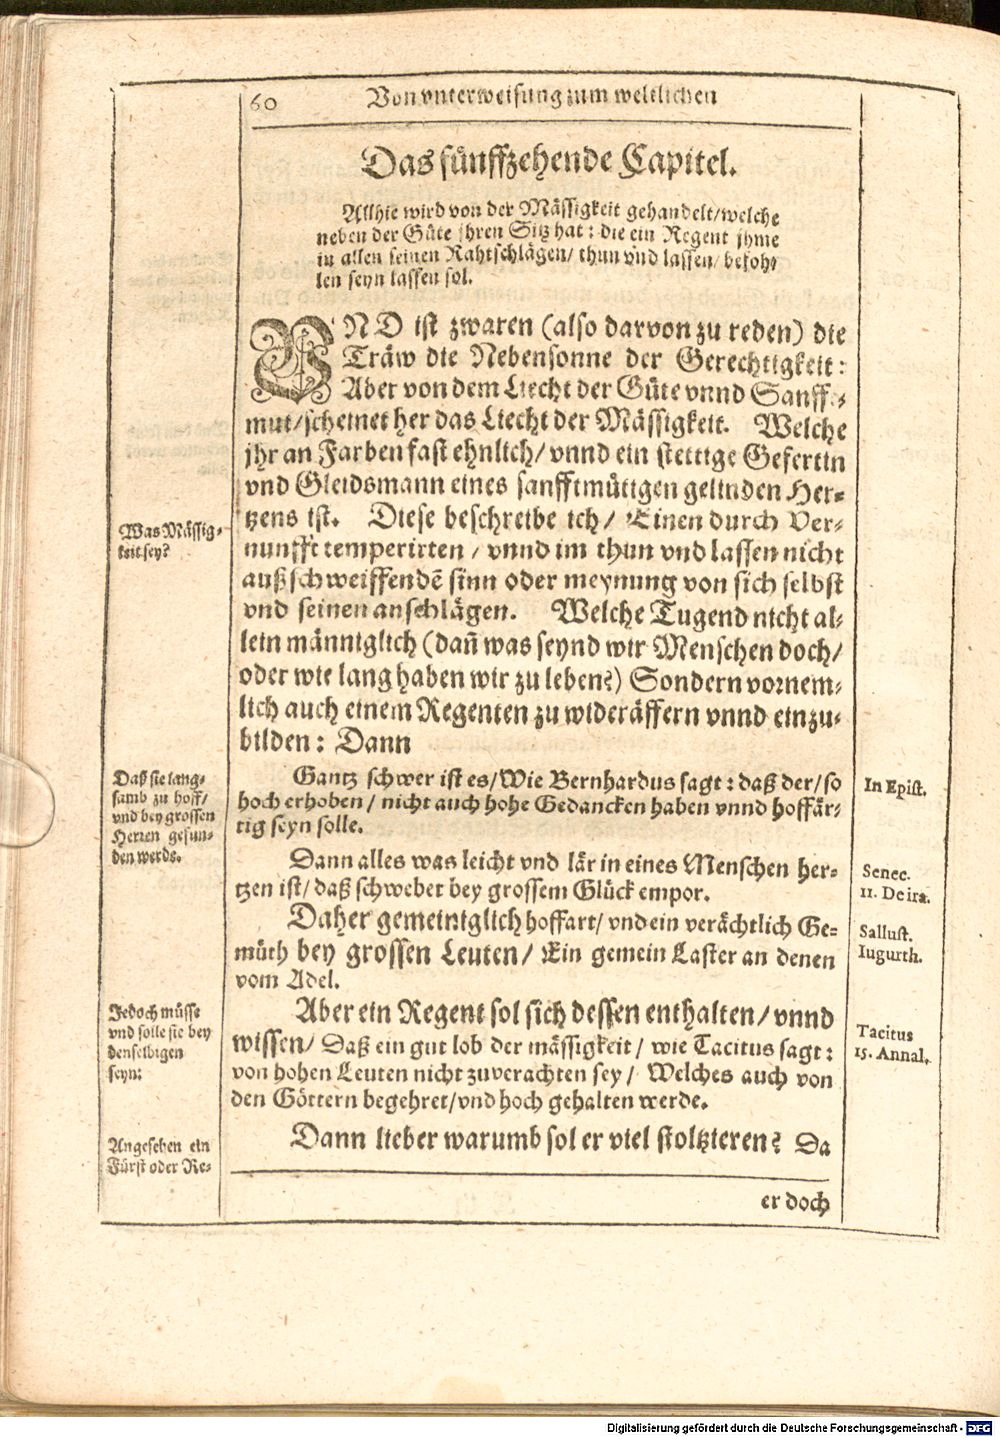 60
Von vnterweisung zum weltlichen
Das fünffzehende Capitel.
Allhie wird von der Mässigkeit gehandelt/welche
neben der Güte jhren Sitz hat: die ein Regent jhme
in allen seinen Rahtschlägen/ thun vnd lassen/ befoh-
len seyn lassen sol.
VND ist zwaren (also darvon zu reden) die
Träw die Nebensonne der Gerechtigkeit:
Aber von dem Liecht der Güte vnnd Sanff-
mut/scheinet her das Liecht der Mässigkeit. Welche
jhr an Farben fast ehnlich/ vnnd ein stettige Gefertin
vnd Gleidsmann eines sanfftmütigen gelinden Her-
tzens ist. Diese beschreibe ich/ Einen durch Ver-
nunfft temperirten/ vnnd im thun vnd lassen nicht
außschweiffendē sinn oder meynung von sich selbst
vnd seinen anschlägen. Welche Tugend nicht al-
lein männiglich (dañ was seynd wir Menschen doch/
oder wie lang haben wir zu leben?) Sondern vornem-
lich auch einem Regenten zu wideräffern vnnd einzu-
bilden: Dann
Was Mässig-
keit sey?
Gantz schwer ist es/Wie Bernhardus sagt: daß der/so
hoch erhoben/ nicht auch hohe Gedancken haben vnnd hoffär-
tig seyn solle.
Daß sie lang-
samb zu hoff/
vnd bey grossen
Herren gefun-
den werde.
In Epist.
Dann alles was leicht vnd lär in eines Menschen her-
tzen ist/ daß schwebet bey grossem Glück empor.
Senec.
11. De ira.
Daher gemeiniglich hoffart/ vnd ein verächtlich Ge-
müth bey grossen Leuten/ Ein gemein Laster an denen
vom Adel.
Sallust.
Iugurth.
Aber ein Regent sol sich dessen enthalten/ vnnd
wissen/ Daß ein gut lob der mässigkeit/ wie Tacitus sagt:
von hohen Leuten nicht zuverachten sey/ Welches auch von
den Göttern begehret/vnd hoch gehalten werde.
Jedoch müsse
vnd solle sie bey
denselbigen
seyn:
Tacitus
15. Annal.
Dann lieber warumb sol er viel stoltzieren? Da
Angesehen ein
Fürst oder Re-
er doch
Digitalisierung gefördert durch die Deutsche Forschungsgemeinschaft - DFG